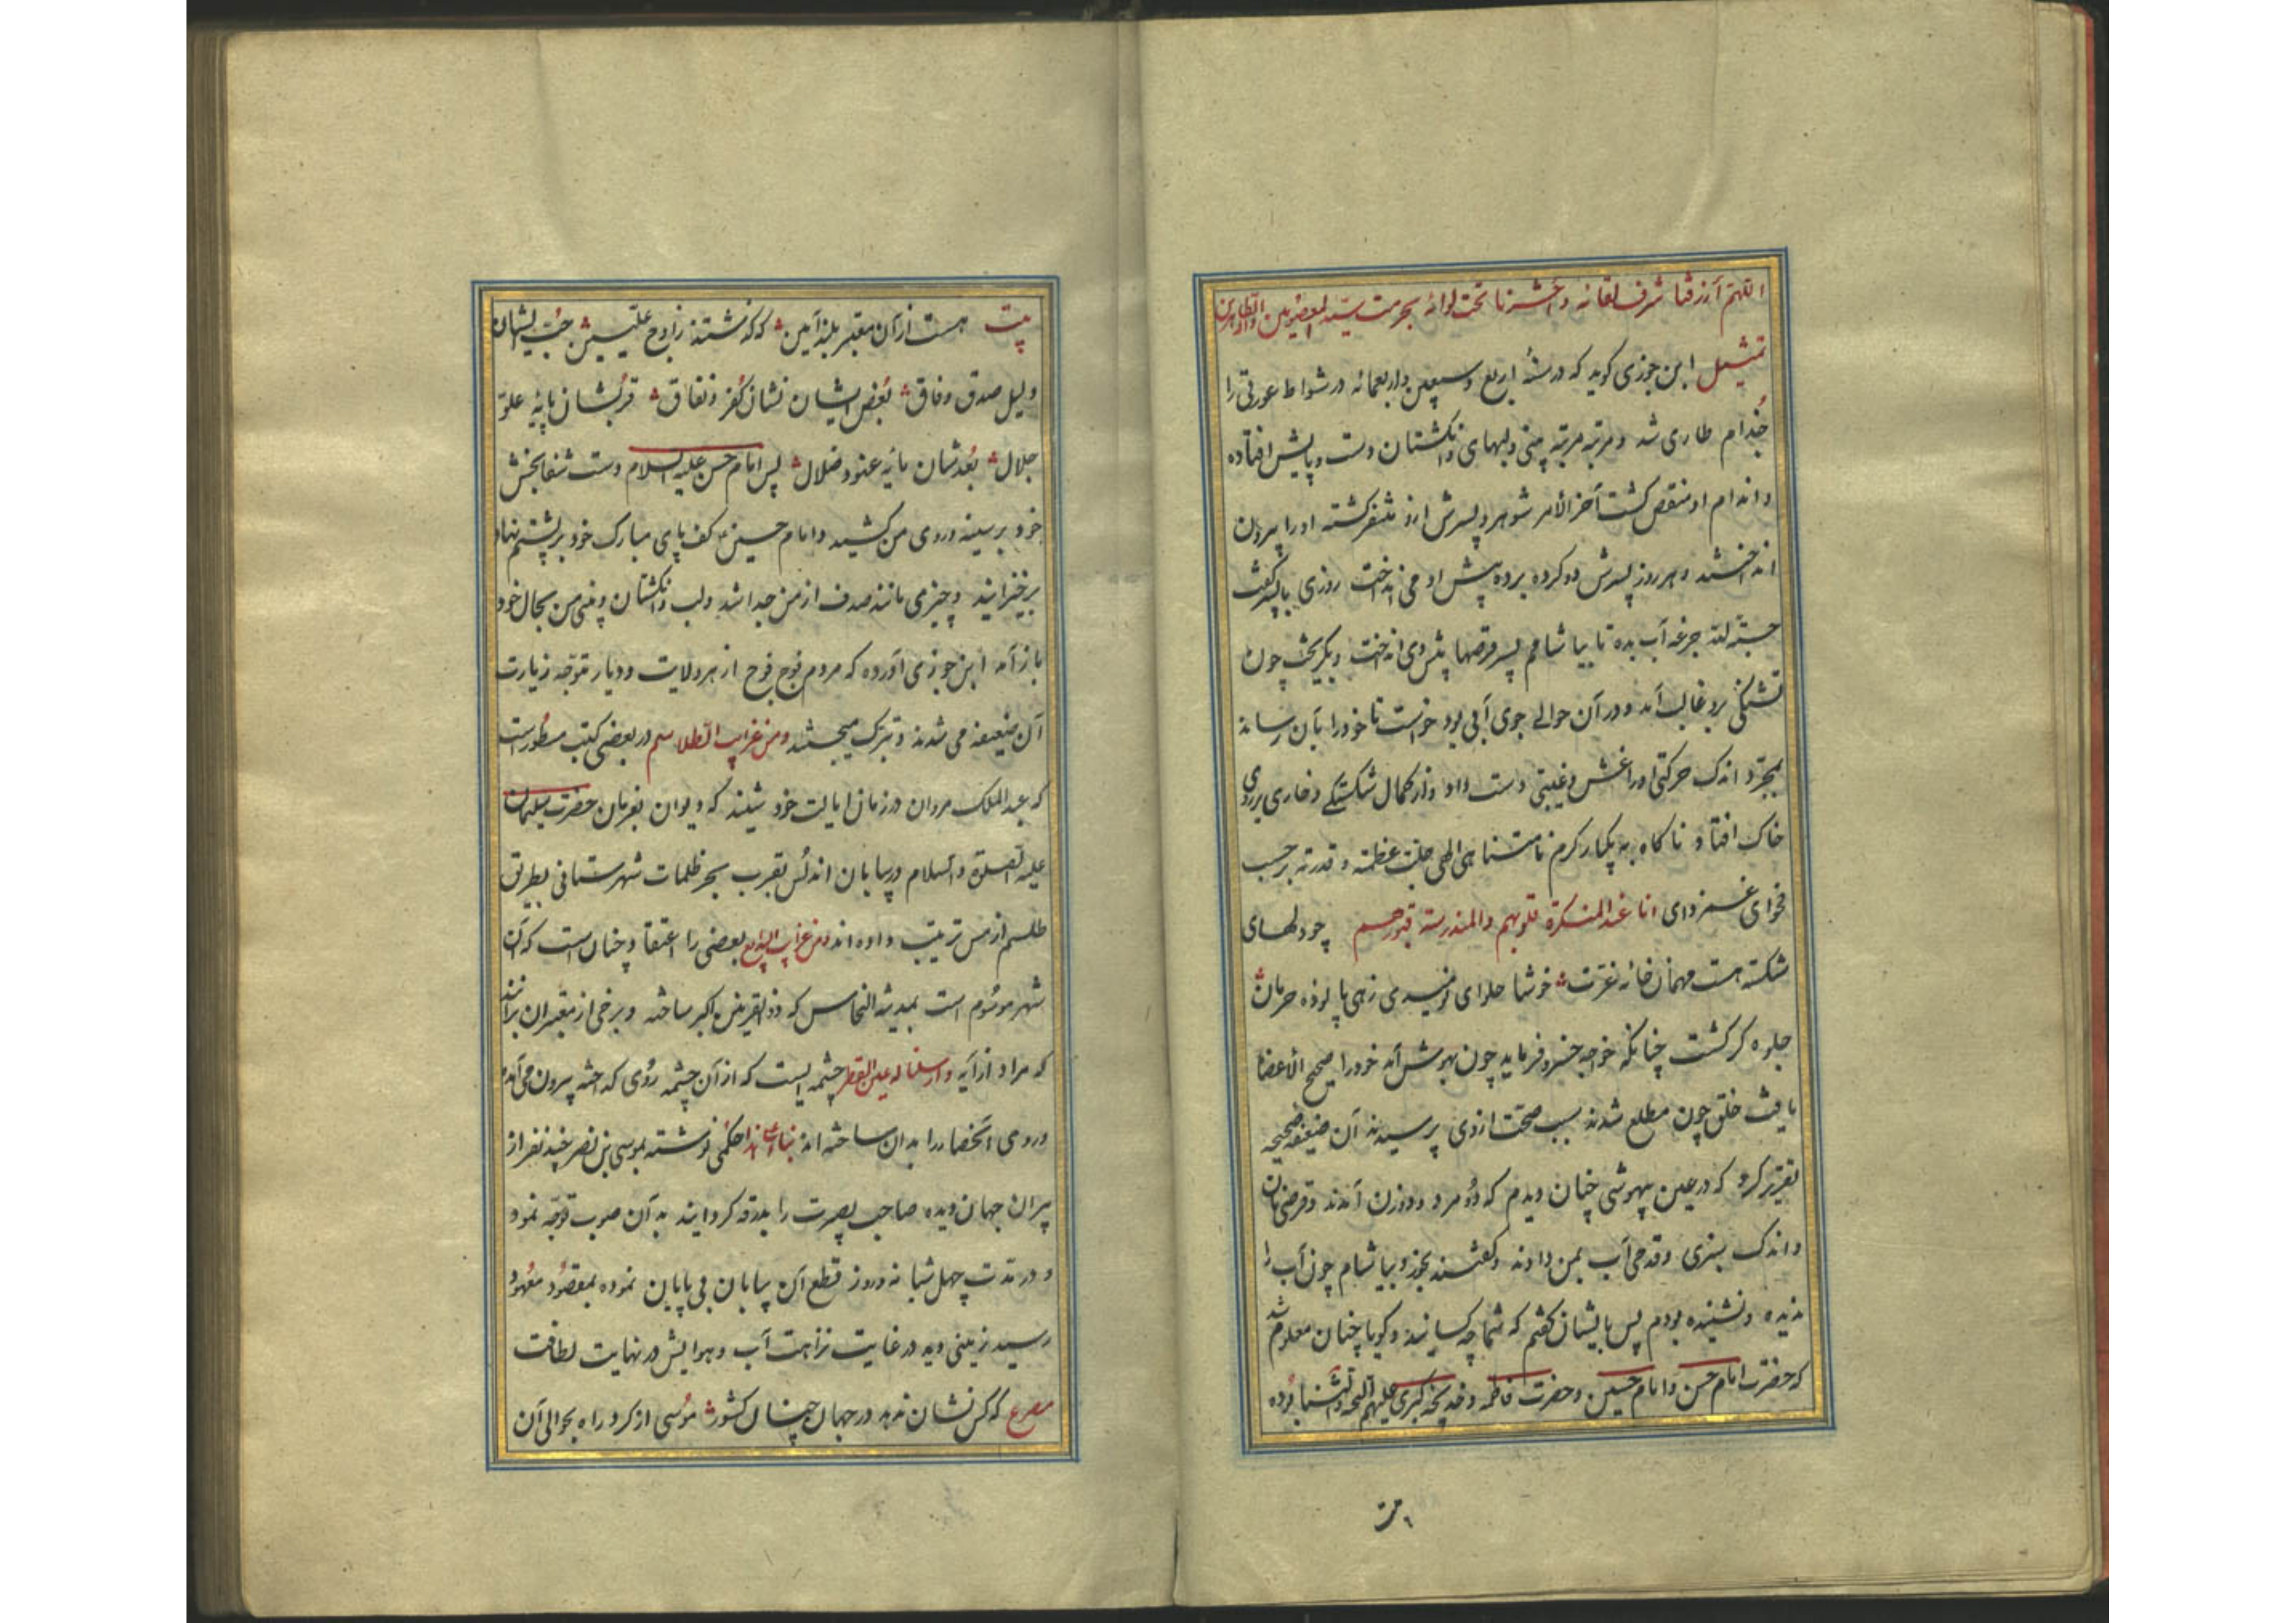 اللهم ارزقنا شرف لقائه واحشرنا تحت لوائه بحرمت سید المعصومین وآله الطاهرین
تمثیل ابن جوزی کوید که در سنهٔ اربع وسبعین واربعمائه در شواط عورتی را
جذام طاری شد ومرتبه مرتبه بینی ولبهای وانکشتان دست وپایش افتاده
واندام او منقص کشت آخر الامر شوهر وپسرش ازو متنفر کشته او را بیرون
انداختند وهر روز پسرش دو کرده برده پیش او می انداخت روزی با پسر کفت
حسبة لله جرعه آب بده تا بیاشامم پسر قرصها پیش وی انداخت وبکریخت چون
تشنکی برو غالب آمد ودر آن حوالی جوی آبی بود خواست تا خود را بآن رساند
بمجرد اندک حرکتی او را غشی وغیبتی دست داد واز کمال شکستکی وخاری بر روی
خاک افتاد ناکاه به یکبار کرم نامتناهی الهی جلت عظمته وقدرته برحسب
فحوای غمزدای انا عند المنکسرة قلوبهم والمندرسة قبورهم چو دلهای
شکسته هست مهمان خانه عزت خوشا حلوای نومیدی زهی پالوده حرمان
جلوه کر کشت چنانکه خواجه خسرو فرماید چون بهوش آمد خود را صحیح الاعضا
یافت خلق چون مطلع شدند سبب صحت از وی پرسیدند آن ضعیفه صحیحه
تقریر کرد که در عین بیهوشی چنان دیدم که دو مرد ودو زن آمدند وقرصی نان
واندک سبزی وقدحی آب بمن دادند وکفتند بخور وبیاشام چون آب را
ندیده ونشنیده بودم پس بایشان کفتم که شما چه کسانید وکویا چنان معلوم شد
که حضرت امام حسن وامام حسین وحضرت فاطمه وخدیجه کبری علیهم التحیة والثنا بوده
بیت
بیت هست از آن معتبر بلند آیین که کذشتند ز اوج علیین حب ایشان
دلیل صدق وفاق بغض ایشان نشان کفر ونفاق قربشان پایه علو
جلال بعدشان مایه عتو وضلال پس امام حسن علیه السلام دست شفابخش
خود بر سینه وروی من کشید وامام حسین کف پای مبارک خود بر پشتم نهاد
برخیزانید وچیزی مانند صدف از من جدا شد ولب وانکشتان وبینی من بحال خود
باز آمد ابن جوزی آورده که مردم فوج فوج از هر ولایت ودیار متوجه زیارت
آن ضعیفه می شدند وتبرک میجستند ومن غرایب الطلاسم در بعضی کتب مسطور است
که عبد الملک مروان در زمان ایالت خود شنید که دیوان بفرمان حضرت سلیمان
علیه الصلوة والسلام در بیابان اندلس بقرب بحر ظلمات شهرستانی بطریق
طلسم از مس ترتیب داده اند ومن غرایب البدایع بعضی را اعتقاد چنان است که آن
شهر موسوم است بمدینة النحاس که ذو القرنین اکبر ساخته وبرخی از معتبران برآنند
که مراد از آیه وارسلنا له عین القطر چشمه ایست که از آن چشمه روی کداخته بیرون می آید
وروی انحصار را بدان ساخته اند بناء علی هذا حکمی نوشته بموسی بن نصر چند نفر از
پیران جهان دیده صاحب بصیرت را بدرقه کردانید به آن صوب توجه نمود
ودر مدت چهل شبانه روز قطع آن بیابان بی پایان نموده بمقصود معهود
رسید زمینی دید در غایت نزاهت آب وهوایش در نهایت لطافت
مصرع که کس نشان ندهد در جهان چنان کشور موسی از کرد راه بحوالی آن